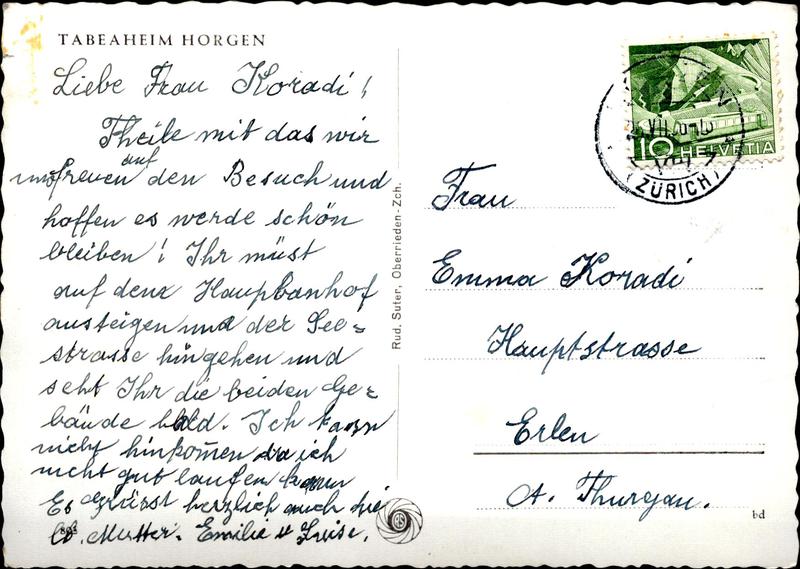 TABEAHEIM HORGEN
Liebe Frau Koradi!
Theile mit das wir
uns freuen auf den Besuch und
hoffen es werde schön
bleiben! Ihr müst
auf dem Haupbanhof
aussteigen und der See=
strasse hingehen und
seht Ihr die beiden Ge=
bäude bald. Ich kann
nicht hinkom̄en da ich
nicht gut laufen kann
Es Grüsst herzlich auch die
lb. Mutter. Emilie u Luise.
803
Rud. Suter, Oberrieden-Zch.
RS
10 HELVETIA
VII
(ZÜRICH)
Frau
Emma Koradi
Hauptstrasse
Erlen
Kt. Thurgau.
bd